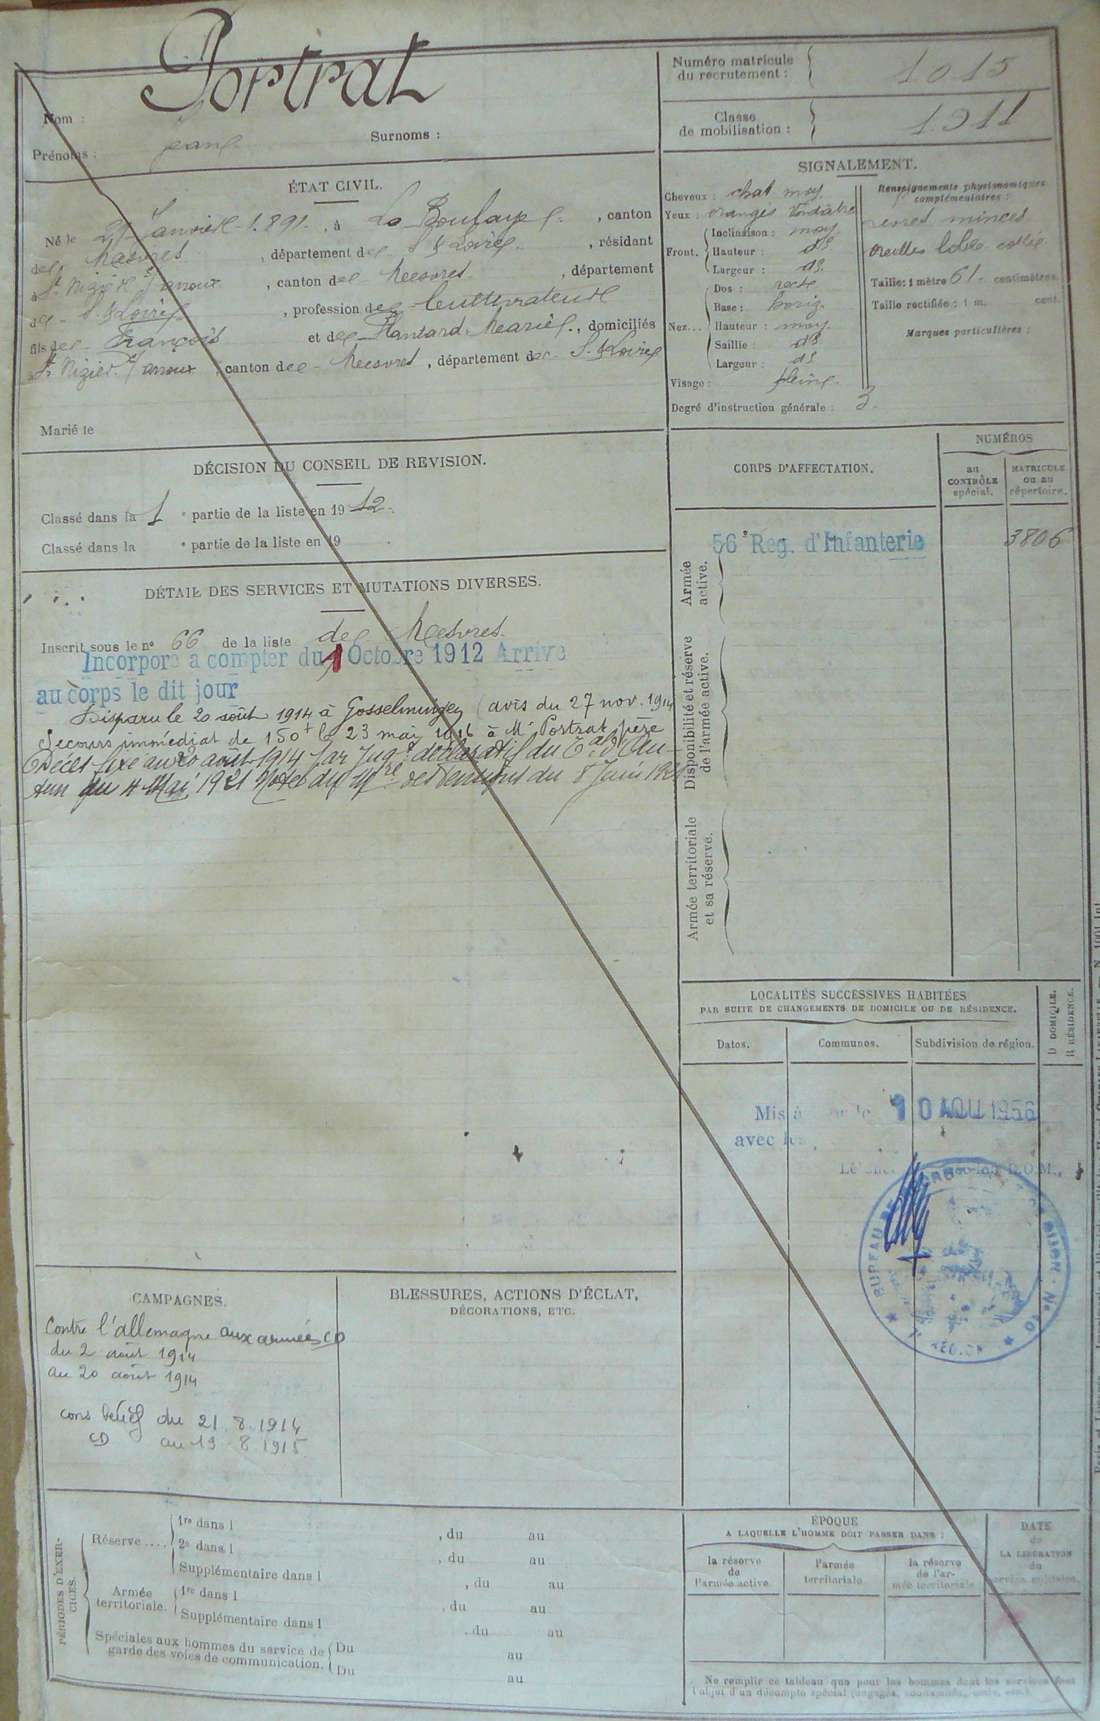 Portrat
Nom :
Jean
Surnoms :
Prénoms :
Numéro matricule
du recrutement :
1015
Classe
de mobilisation :
1911
ÉTAT CIVIL.
Né le Janvier 1891, à La Boulaye, canton
de Mesvres, département de S. & Loire, résidant
à St Nizier s/ arroux, canton de Mesvres, département
de S. & Loire, profession de Cultivateur
fils de François et de Marie, domiciliés
à St Nizier s/ arroux, canton de Mesvres, département de S. & Loire
Marié le
SIGNALEMENT.
Cheveux : chat. moy.
Yeux : orangés verdatre
Front. Inclinaison : moy
Hauteur : do
Largeur : do
Nez... Dos : rect
Base : horiz.
Hauteur : moy.
Saillie : do
Largeur : do
Visage : plein
Degré d'instruction générale : 3
Renseignements physionomiques
complémentaires :
minces
Oreilles lobe
Taille : 1 mètre 61 centimètres
Taille rectifiée : 1 m. cent.
Marques particulières :
DÉCISION DU CONSEIL DE REVISION.
Classé dans la 1 e partie de la liste en 1912.
Classé dans la e partie de la liste en 19
DÉTAIL DES SERVICES ET MUTATIONS DIVERSES.
Inscrit sous le no 66 de la liste de Mesvres
Incorporé à compter du 1 Octobre 1912 Arrivé
au corps le dit jour
Disparu le 20 août 1914 à (avis du 27 nov. 1914
Secours immédiat de 150 f le 23 mai 1916 à Mr Portrat père
Décès fixé au 20 août 1914 par Jugt déclaratif du d'Au-
tun du 4 Mai 1921 Notes du Mre des Pensions du 8 Juin
CORPS D'AFFECTATION.
NUMÉROS
au
CONTRÔLE
spécial.
MATRICULE
ou au
répertoire.
Armée
active.
56e Reg. d'Infanterie
3806
Disponibilité et réserve
de l'armée active.
Armée territoriale
et sa réserve.
LOCALITÉS SUCCESSIVES HABITÉES
PAR SUITE DE CHANGEMENTS DE DOMICILE OU DE RÉSIDENCE.
D DOMICILE.
R RÉSIDENCE.
Dates.
Communes.
Subdivision de région.
Mis à le 10 AOU 1956
avec
BUREAU DE DIJON - No 10
RÉGION
CAMPAGNES.
Contre l'allemagne aux armées CD
du 2 août 1914
au 20 août 1914
cons bénéf du 21.8.1914
CD au 19.8.1915
BLESSURES, ACTIONS D'ÉCLAT,
DÉCORATIONS, ETC.
PÉRIODES D'EXER-
CICES.
Réserve.... 1re dans l , du au
2e dans l , du au
Supplémentaire dans l , du au
Armée
territoriale. 1re dans l , du au
Supplémentaire dans l , du au
Spéciales aux hommes du service de
garde des voies de communication. Du au
Du au
ÉPOQUE
A LAQUELLE L'HOMME DOIT PASSER DANS :
la réserve
de
l'armée active.
l'armée
territoriale.
la réserve
de l'ar-
mée territoriale.
DATE
de
LA LIBÉRATION
du
service militaire.
Ne remplir ce tableau que pour les hommes dont les services font
l'objet d'un décompte spécial (engagés,